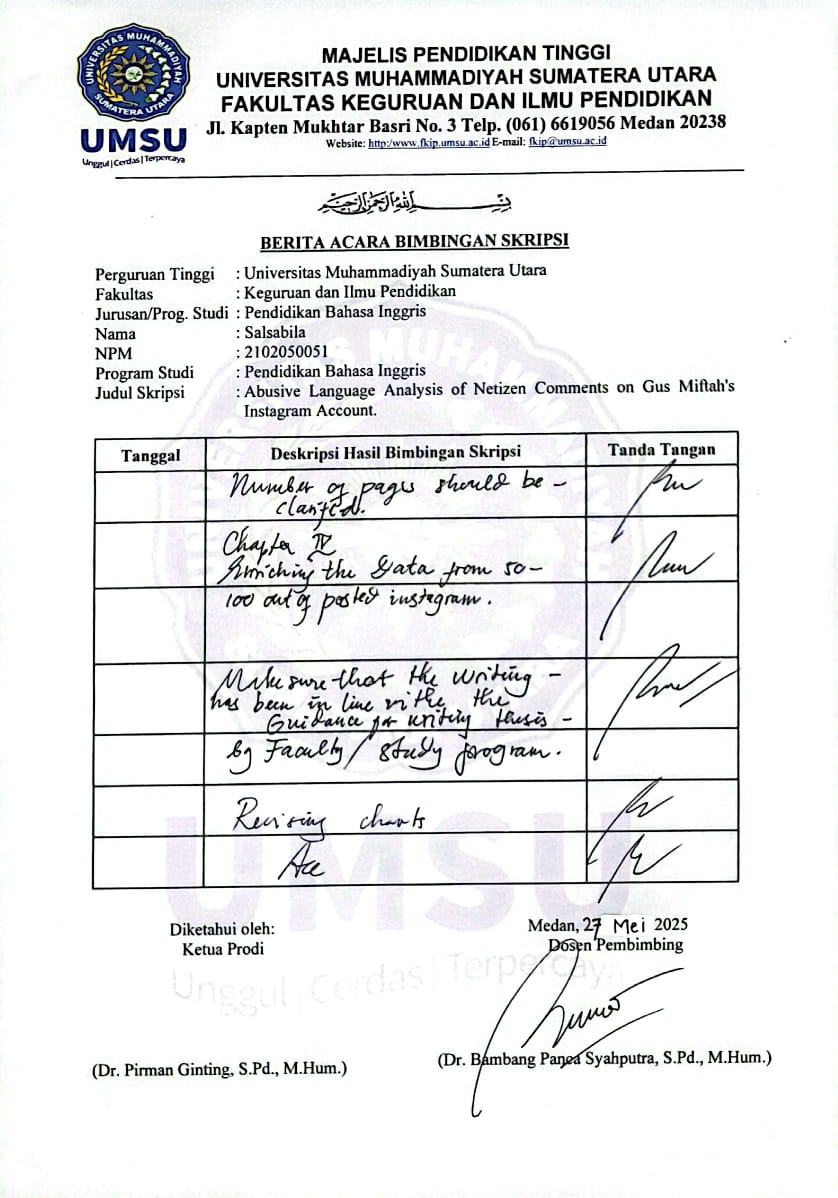 UNIVERSITAS MUHAMMADIYAH
SUMATERA UTARA
UMSU
Unggul | Cerdas | Terpercaya
MAJELIS PENDIDIKAN TINGGI
UNIVERSITAS MUHAMMADIYAH SUMATERA UTARA
FAKULTAS KEGURUAN DAN ILMU PENDIDIKAN
Jl. Kapten Mukhtar Basri No. 3 Telp. (061) 6619056 Medan 20238
Website: http:/www.fkip.umsu.ac.id E-mail: fkip@umsu.ac.id
بسم الله الرحمن الرحيم
BERITA ACARA BIMBINGAN SKRIPSI
Perguruan Tinggi : Universitas Muhammadiyah Sumatera Utara
Fakultas : Keguruan dan Ilmu Pendidikan
Jurusan/Prog. Studi : Pendidikan Bahasa Inggris
Nama : Salsabila
NPM : 2102050051
Program Studi : Pendidikan Bahasa Inggris
Judul Skripsi : Abusive Language Analysis of Netizen Comments on Gus Miftah's
Instagram Account.
Tanggal Deskripsi Hasil Bimbingan Skripsi Tanda Tangan
Number of pages should be -
clarified.
Chapter IV
Enriching the data from 50-
100 out of posted instagram.
Make sure that the writing -
has been in line withe the
Guidance for writing thesis -
by Faculty / study program.
Revising charts
Acc
UMSU
Unggul | Cerdas | Terpercaya
Diketahui oleh:
Ketua Prodi
Medan, 27 Mei 2025
Dosen Pembimbing
(Dr. Pirman Ginting, S.Pd., M.Hum.)
(Dr. Bambang Panca Syahputra, S.Pd., M.Hum.)